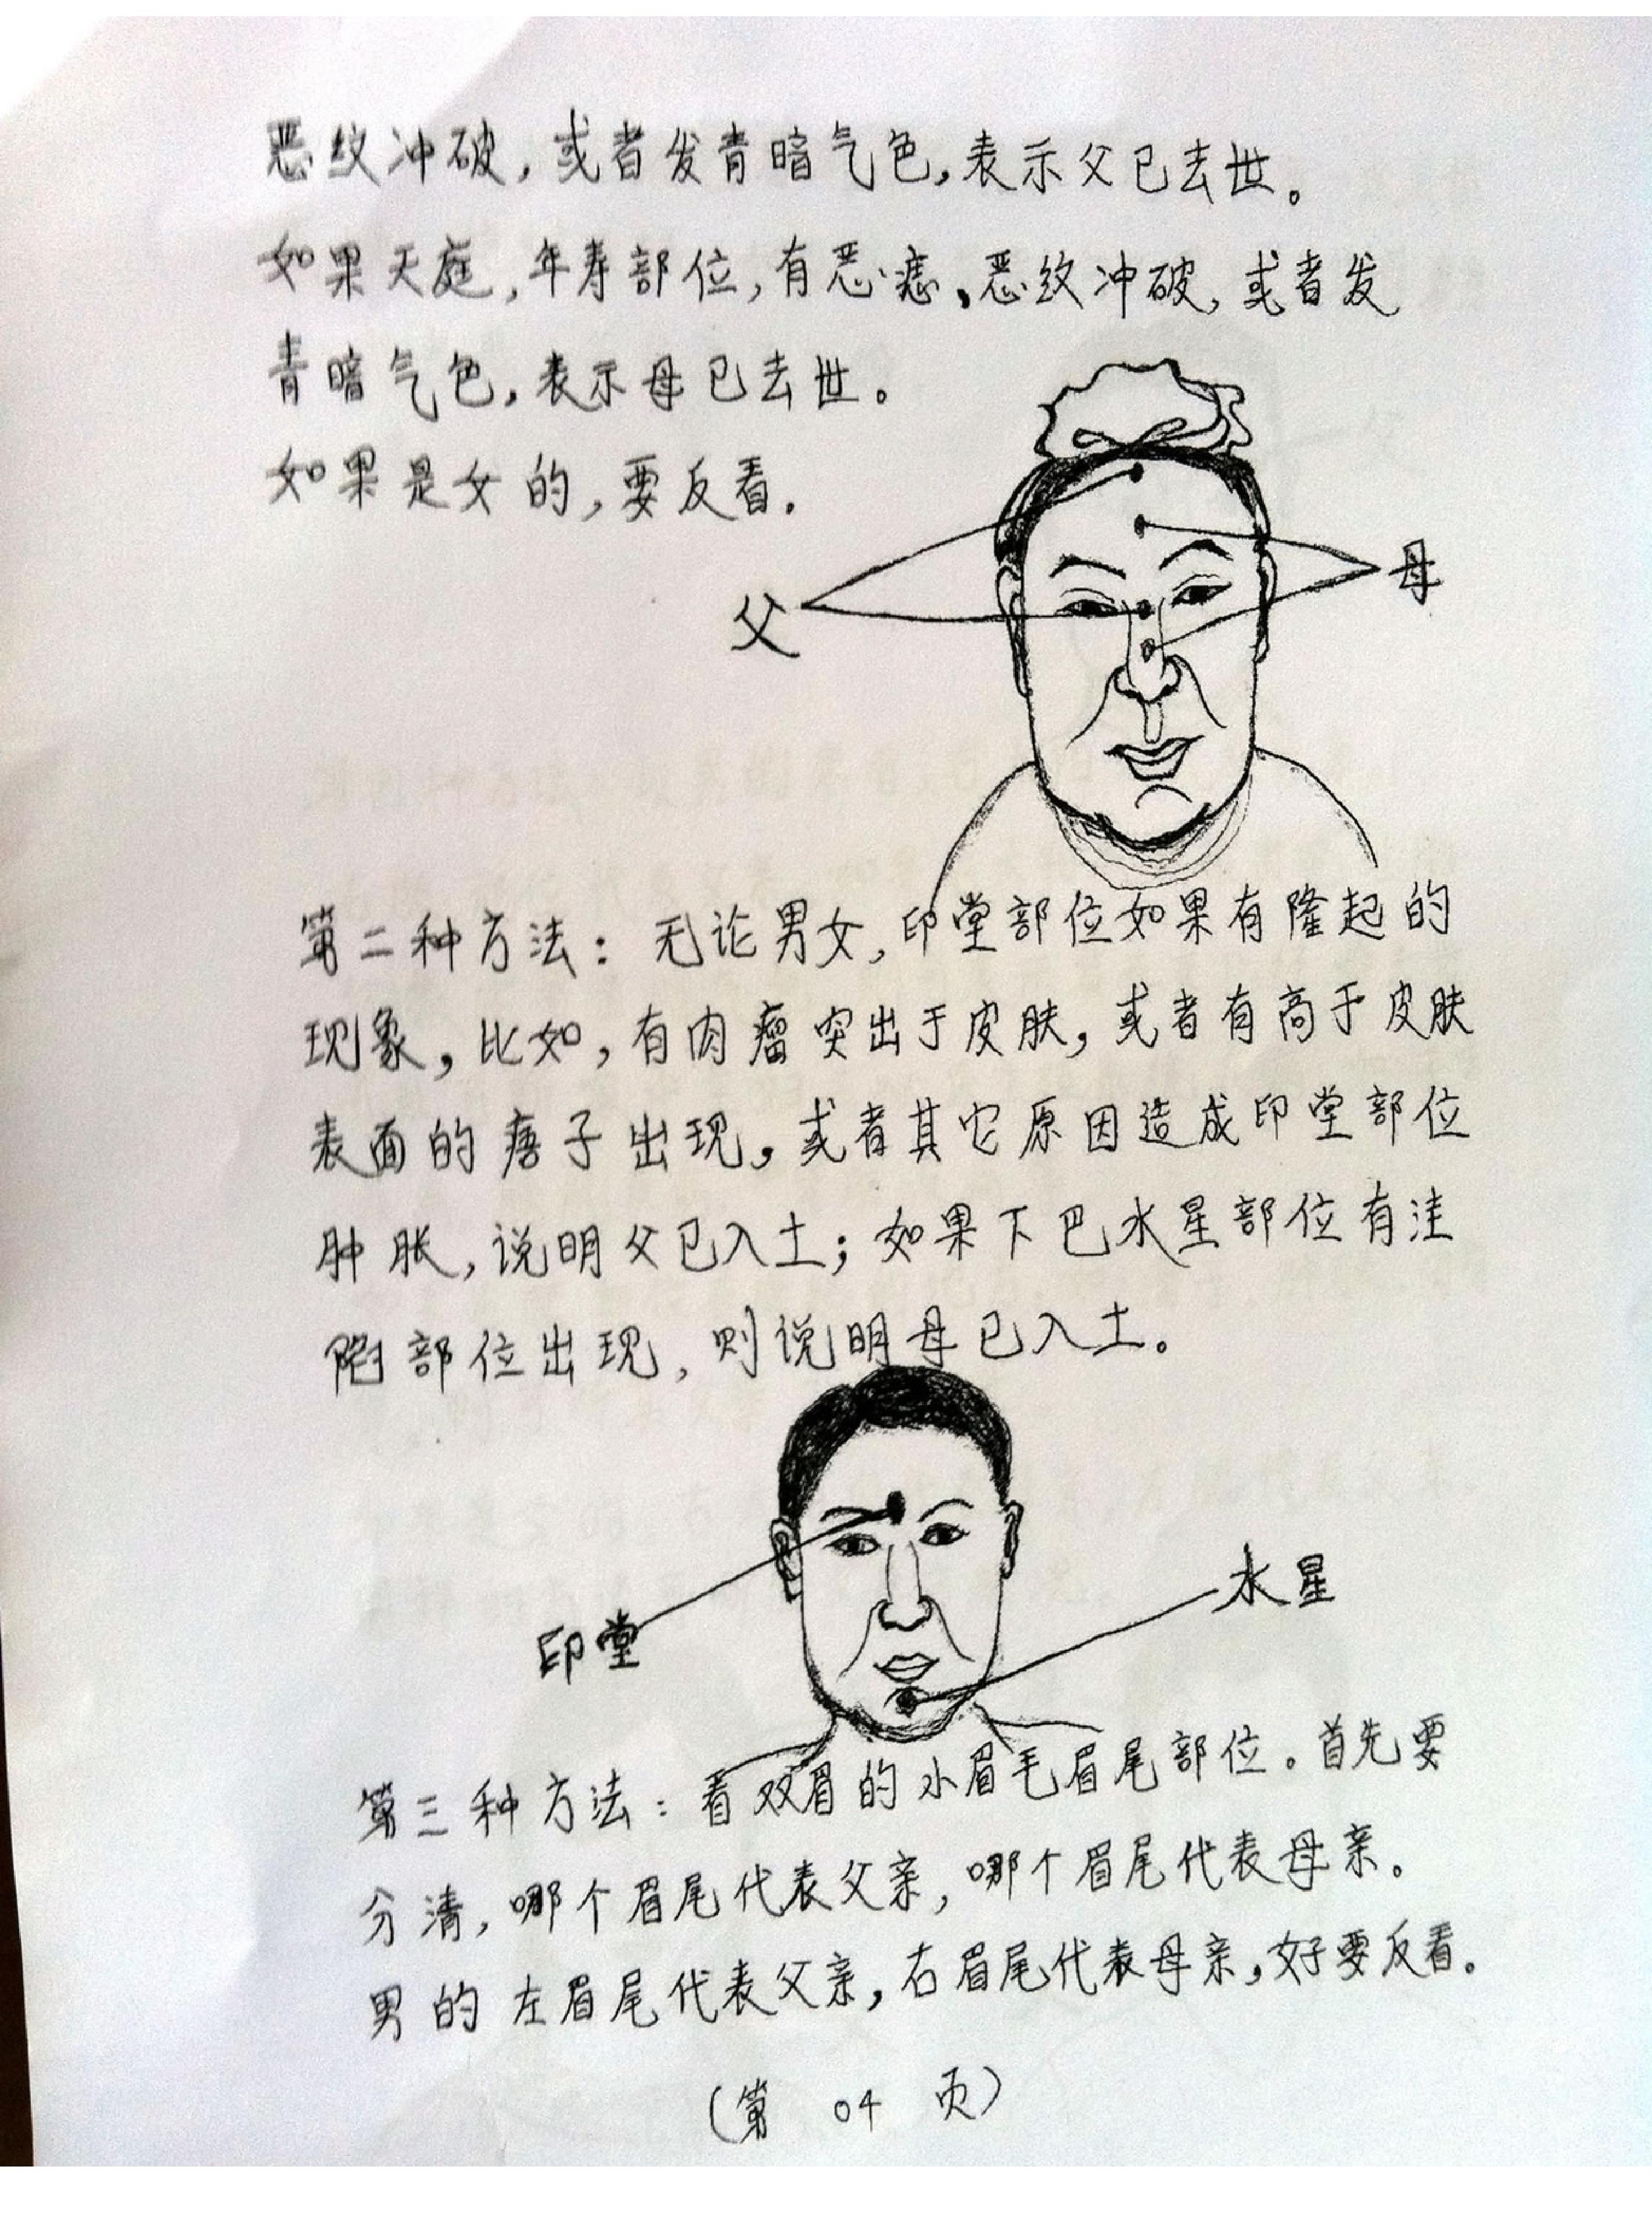 恶纹冲破,或者发青暗气色,表示父已去世。
如果天庭,年寿部位,有恶痣,恶纹冲破,或者发
青暗气色,表示母已去世。
如果是女的,要反看.
父
母
第二种方法:无论男女,印堂部位如果有隆起的
现象,比如,有肉瘤突出于皮肤,或者有高于皮肤
表面的痦子出现,或者其它原因造成印堂部位
肿胀,说明父已入土;如果下巴水星部位有洼
陷部位出现,则说明母已入土。
印堂
水星
第三种方法:看双眉的小眉毛眉尾部位。首先要
分清,哪个眉尾代表父亲,哪个眉尾代表母亲。
男的左眉尾代表父亲,右眉尾代表母亲,好要反看。
(第 04 页)